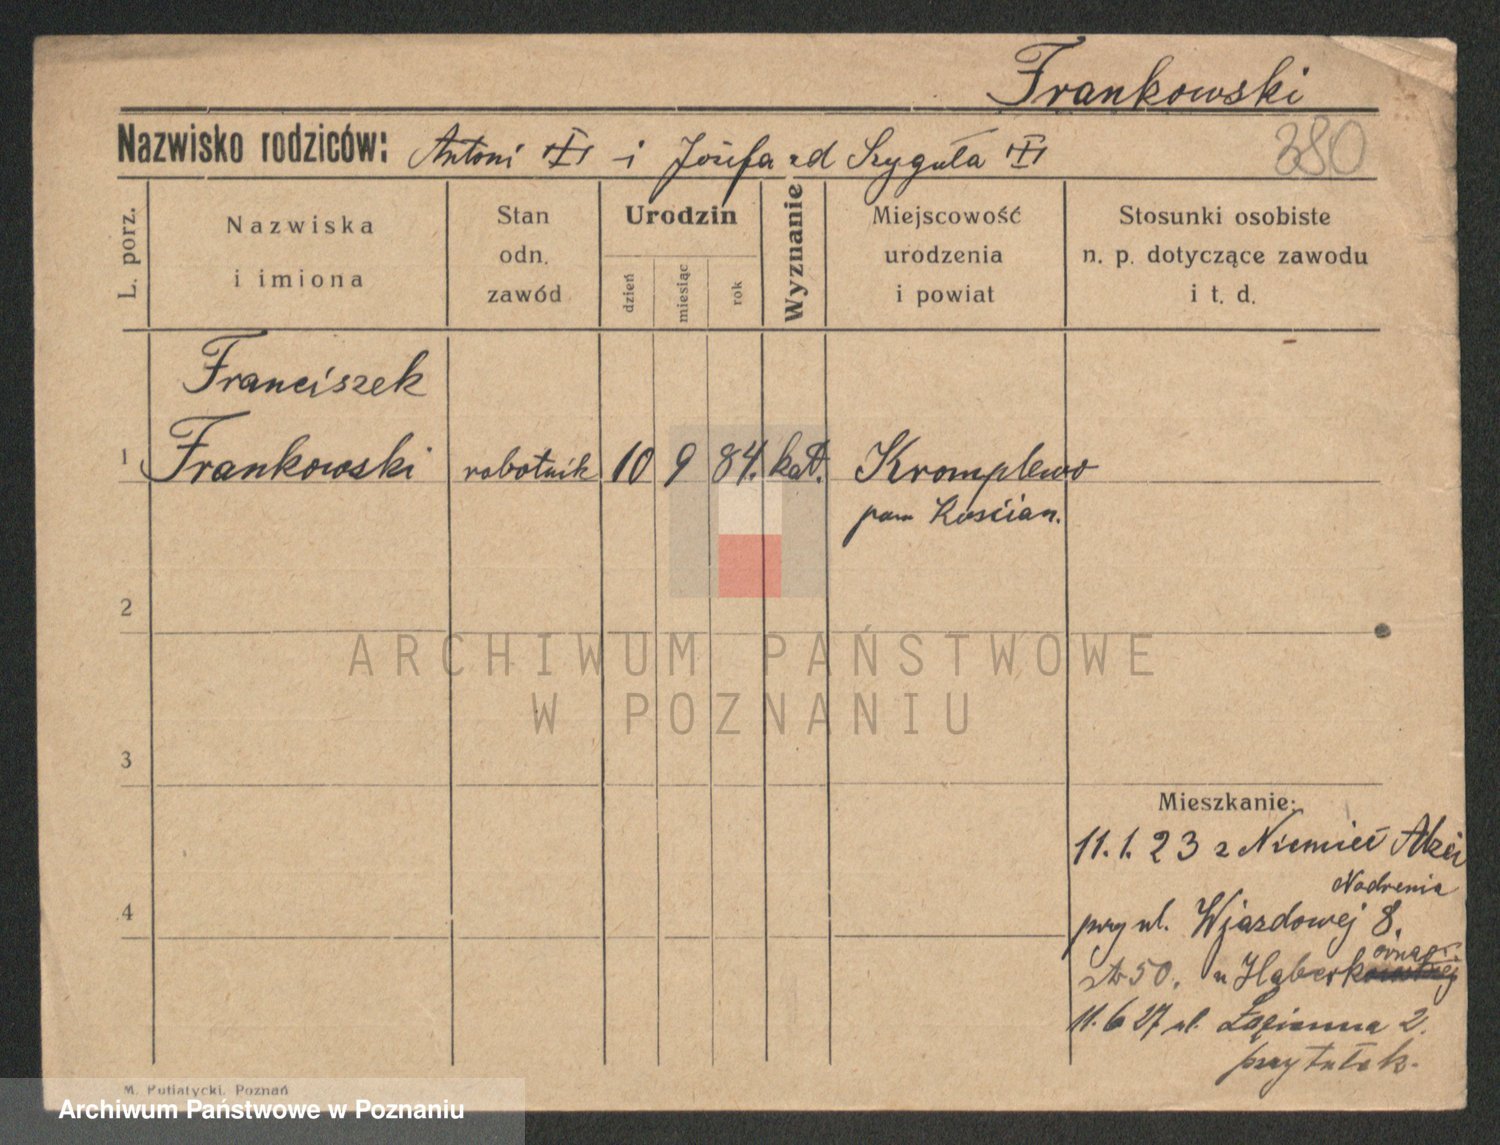 Frankowski
380
Nazwisko rodziców: Antoni i Józefa zd Szyguła
L. porz.
Nazwiska i imiona
Stan odn. zawód
Urodzin
dzień
miesiąc
rok
Wyznanie
Miejscowość urodzenia i powiat
Stosunki osobiste n. p. dotyczące zawodu i t. d.
Franciszek
1 Frankowski robotnik 10 9 84. kat. Kromplewo
pow Kościan.
2
ARCHIWUM PAŃSTWOWE
W POZNANIU
3
Mieszkanie:
11.1.23 z Niemiec Alzei
Nadrenia
przy ul. Wjazdowej 8.
4
50. u Haberk
11.6 27 ul. Łąkienna 2.
przytułek.
M. Putiatycki, Poznań
Archiwum Państwowe w Poznaniu